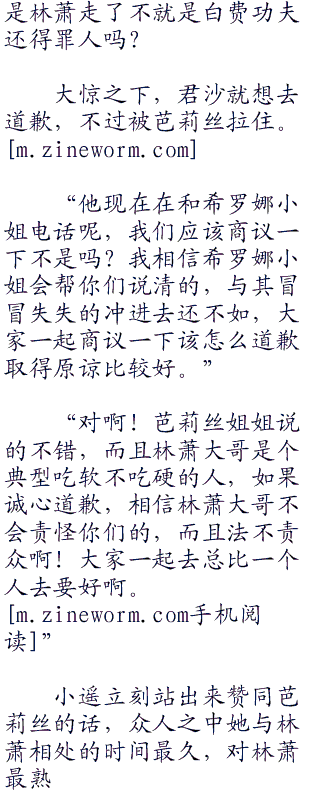 是林萧走了不就是白费功夫
还得罪人吗？
大惊之下，君沙就想去
道歉，不过被芭莉丝拉住。
[m.zineworm.com]
“他现在在和希罗娜小
姐电话呢，我们应该商议一
下不是吗？我相信希罗娜小
姐会帮你们说清的，与其冒
冒失失的冲进去还不如，大
家一起商议一下该怎么道歉
取得原谅比较好。”
“对啊！芭莉丝姐姐说
的不错，而且林萧大哥是个
典型吃软不吃硬的人，如果
诚心道歉，相信林萧大哥不
会责怪你们的，而且法不责
众啊！大家一起去总比一个
人去要好啊。
[m.zineworm.com手机阅
读]”
小遥立刻站出来赞同芭
莉丝的话，众人之中她与林
萧相处的时间最久，对林萧
最熟